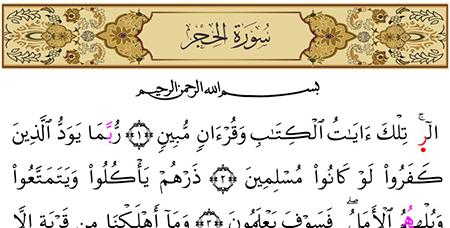 سُورَةُ الحِجْرِ
بسم الله الرحمن الرحيم
الٓرۚ تِلْكَ ءَايَٰتُ ٱلْكِتَٰبِ وَقُرْءَانٍ مُّبِينٍ ﴿١﴾ رُّبَمَا يَوَدُّ ٱلَّذِينَ
كَفَرُوا۟ لَوْ كَانُوا۟ مُسْلِمِينَ ﴿٢﴾ ذَرْهُمْ يَأْكُلُوا۟ وَيَتَمَتَّعُوا۟
وَيُلْهِهِمُ ٱلْأَمَلُۖ فَسَوْفَ يَعْلَمُونَ ﴿٣﴾ وَمَآ أَهْلَكْنَا مِن قَرْيَةٍ إِلَّا